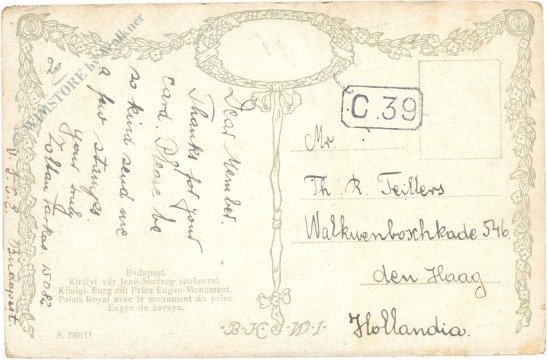 Dear Member.
Thanks for your
card. Please be
so kind send me
a few stamps
your truly
Zoltan Farkas
Budapest
C. 39
Mr
Th R. Teillers
Walkwenboschkade 546
den Haag
Hollandia.
Budapest.
Királyi vár Jenő herczeg szoborral.
Königl. Burg mit Prinz Eugen-Monument.
Palais Royal avec le monument du princ
Eugen de Savoya.
S. 280/11
·B·K·W·I·
KIMSTORE by Walkner